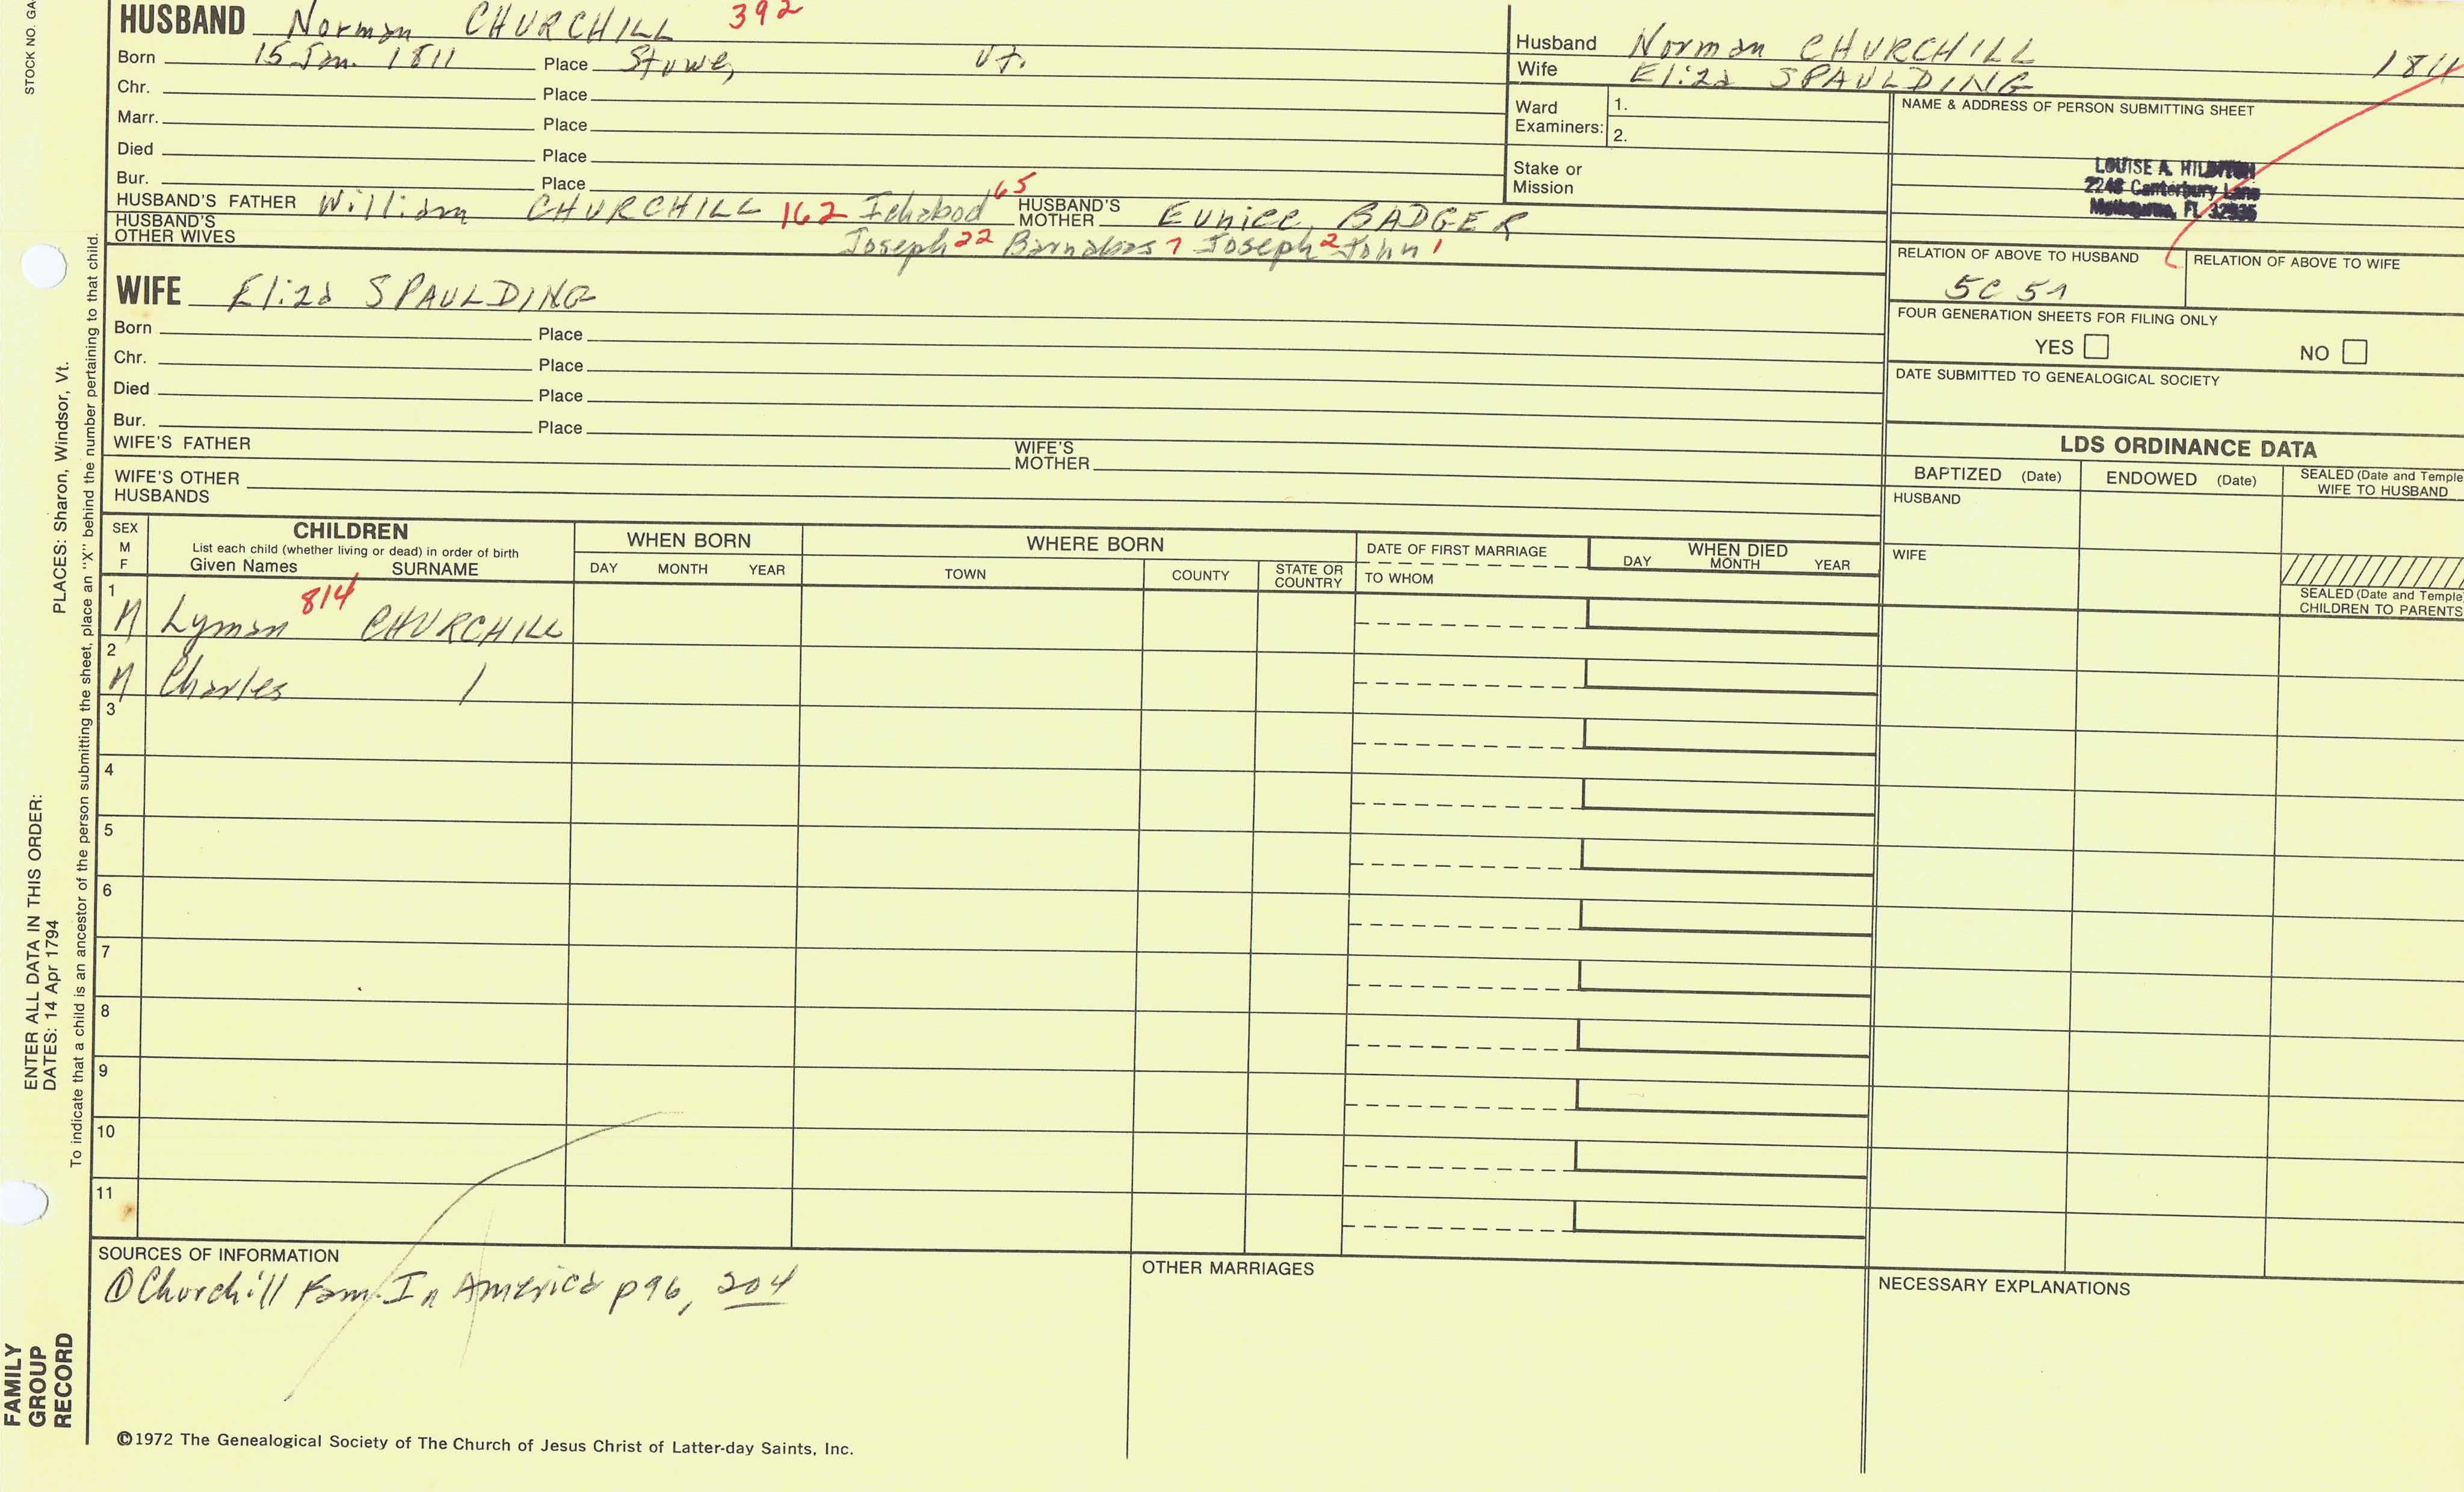 STOCK NO. GA
HUSBAND Norman CHURCHILL 392
Born 15 Jan. 1811 Place Stowe, Vt.
Chr. Place
Marr. Place
Died Place
Bur. Place
HUSBAND'S FATHER William CHURCHILL 162 Ichabod 65 HUSBAND'S MOTHER Eunice BADGER
HUSBAND'S OTHER WIVES Joseph 22 Barnabas 7 Joseph 2 John 1
Husband Norman CHURCHILL 1811
Wife Eliza SPAULDING
Ward Examiners: 1.
2.
Stake or Mission
NAME & ADDRESS OF PERSON SUBMITTING SHEET
LOUISE A.
2248 Canterbury Lane
Melbourne, FL 32935
RELATION OF ABOVE TO HUSBAND
RELATION OF ABOVE TO WIFE
5C 5
FOUR GENERATION SHEETS FOR FILING ONLY
YES NO
DATE SUBMITTED TO GENEALOGICAL SOCIETY
WIFE Eliza SPAULDING
Born Place
Chr. Place
Died Place
Bur. Place
WIFE'S FATHER WIFE'S MOTHER
WIFE'S OTHER HUSBANDS
LDS ORDINANCE DATA
BAPTIZED (Date) ENDOWED (Date) SEALED (Date and Temple
WIFE TO HUSBAND
HUSBAND
WIFE
SEALED (Date and Temple)
CHILDREN TO PARENTS
SEX
M
F
CHILDREN
List each child (whether living or dead) in order of birth
Given Names SURNAME
WHEN BORN
DAY MONTH YEAR
WHERE BORN
TOWN COUNTY STATE OR COUNTRY
DATE OF FIRST MARRIAGE
TO WHOM
WHEN DIED
DAY MONTH YEAR
1 M Lyman 814 CHURCHILL
2 M Charles /
3
4
5
6
7
8
9
10
11
SOURCES OF INFORMATION
① Churchill Fam. In America p96, 204
OTHER MARRIAGES
NECESSARY EXPLANATIONS
©1972 The Genealogical Society of The Church of Jesus Christ of Latter-day Saints, Inc.
FAMILY
GROUP
RECORD
ENTER ALL DATA IN THIS ORDER:
DATES: 14 Apr 1794
PLACES: Sharon, Windsor, Vt.
To indicate that a child is an ancestor of the person submitting the sheet, place an "X" behind the number pertaining to that child.